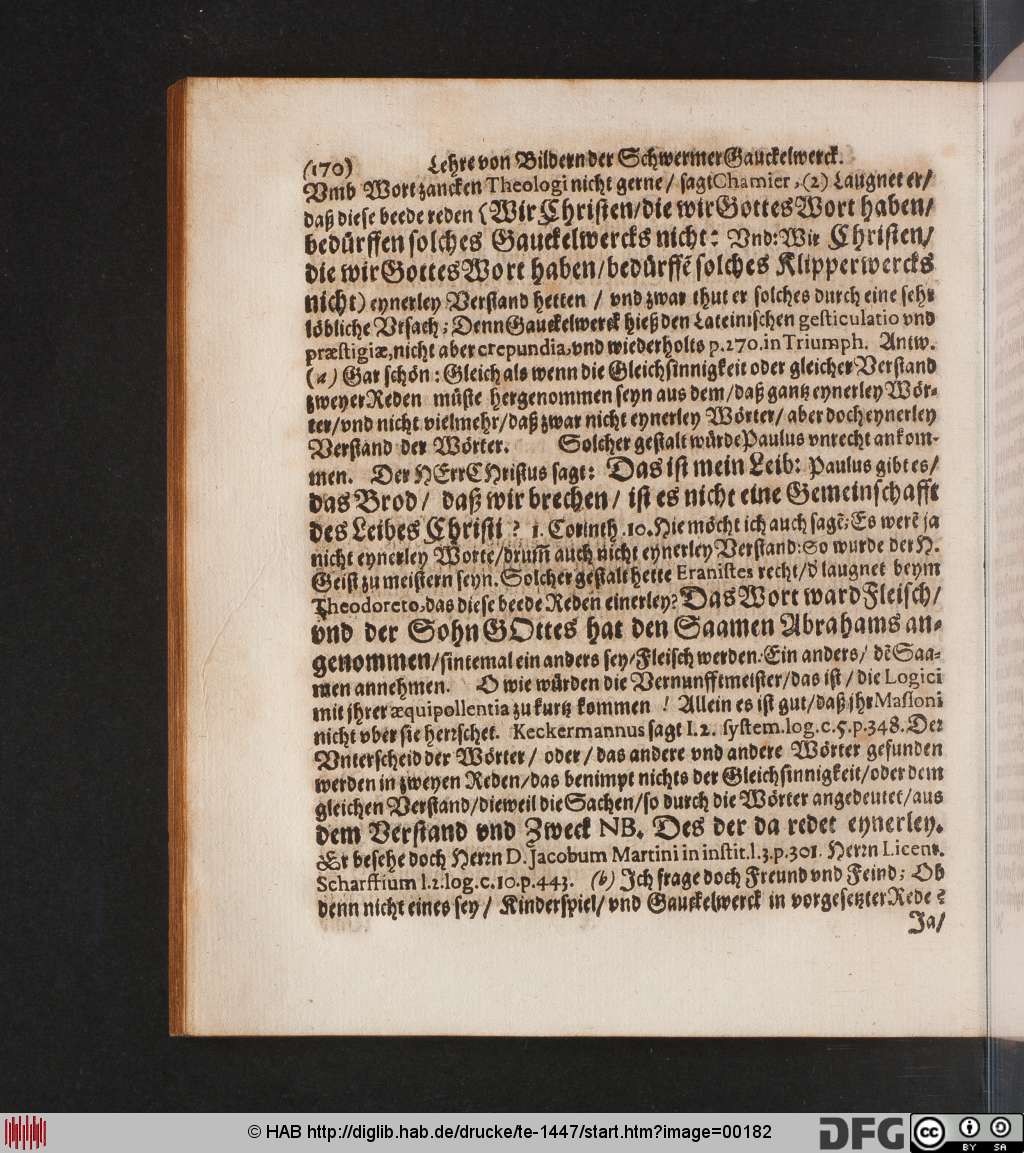 (170) Lehre von Bildern der Schwermer Gauckelwerck.
Vmb Wort zancken Theologi nicht gerne / sagt Chamier, (2) Laugnet er/
daß diese beede reden (Wir Christen/die wir Gottes Wort haben/
bedürffen solches Gauckelwercks nicht: Vnd: Wir Christen/
die wir Gottes Wort haben/bedürffẽ solches Klipperwercks
nicht) eynerley Verstand hetten / vnd zwar thut er solches durch eine sehr
löbliche Vrsach; Denn Gauckelwerck hieß den Lateinischen gesticulatio vnd
præstigiæ, nicht aber crepundia, vnd wiederholts p. 270. in Triumph. Antw.
(a) Gar schön: Gleich als wenn die Gleichsinnigkeit oder gleicher Verstand
zweyer Reden müste hergenommen seyn aus dem/daß gantz eynerley Wör-
ter/vnd nicht vielmehr/daß zwar nicht eynerley Wörter/ aber doch eynerley
Verstand der Wörter. Solcher gestalt würde Paulus vnrecht ankom-
men. Der HErr CHristus sagt: Das ist mein Leib: Paulus gibt es/
das Brod / daß wir brechen / ist es nicht eine Gemeinschafft
des Leibes Christi? 1. Corinth. 10. Hie möcht ich auch sagẽ; Es werẽ ja
nicht eynerley Worte/drum̃ auch nicht eynerley Verstand: So wurde der H.
Geist zu meistern seyn. Solcher gestalt hette Eranistes recht/ d' laugnet beym
Theodoreto, das diese beede Reden einerley? Das Wort ward Fleisch/
vnd der Sohn GOttes hat den Saamen Abrahams an-
genommen/sintemal ein anders sey/Fleisch werden: Ein anders/ dẽ Saa-
men annehmen. O wie würden die Vernunfftmeister/das ist / die Logici
mit jhrer æquipollentia zu kurtz kommen ! Allein es ist gut/daß jhr Massoni
nicht vber sie herrschet. Keckermannus sagt l. 2. system. log. c. 5. p. 348. Der
Vnterscheid der Wörter / oder / das andere vnd andere Wörter gefunden
werden in zweyen Reden/das benimpt nichts der Gleichsinnigkeit/oder dem
gleichen Verstand/dieweil die Sachen/so durch die Wörter angedeutet/aus
dem Verstand vnd Zweck NB. Des der da redet eynerley.
Er besehe doch Herrn D. Jacobum Martini in instit. l. 3. p. 301. Herrn Licent.
Scharffium l. 2. log. c. 10. p. 443. (b) Jch frage doch Freund vnd Feind; Ob
denn nicht eines sey / Kinderspiel/ vnd Gauckelwerck in vorgesetzter Rede?
Ja/
© HAB http://diglib.hab.de/drucke/te-1447/start.htm?image=00182
DFG
cc BY SA